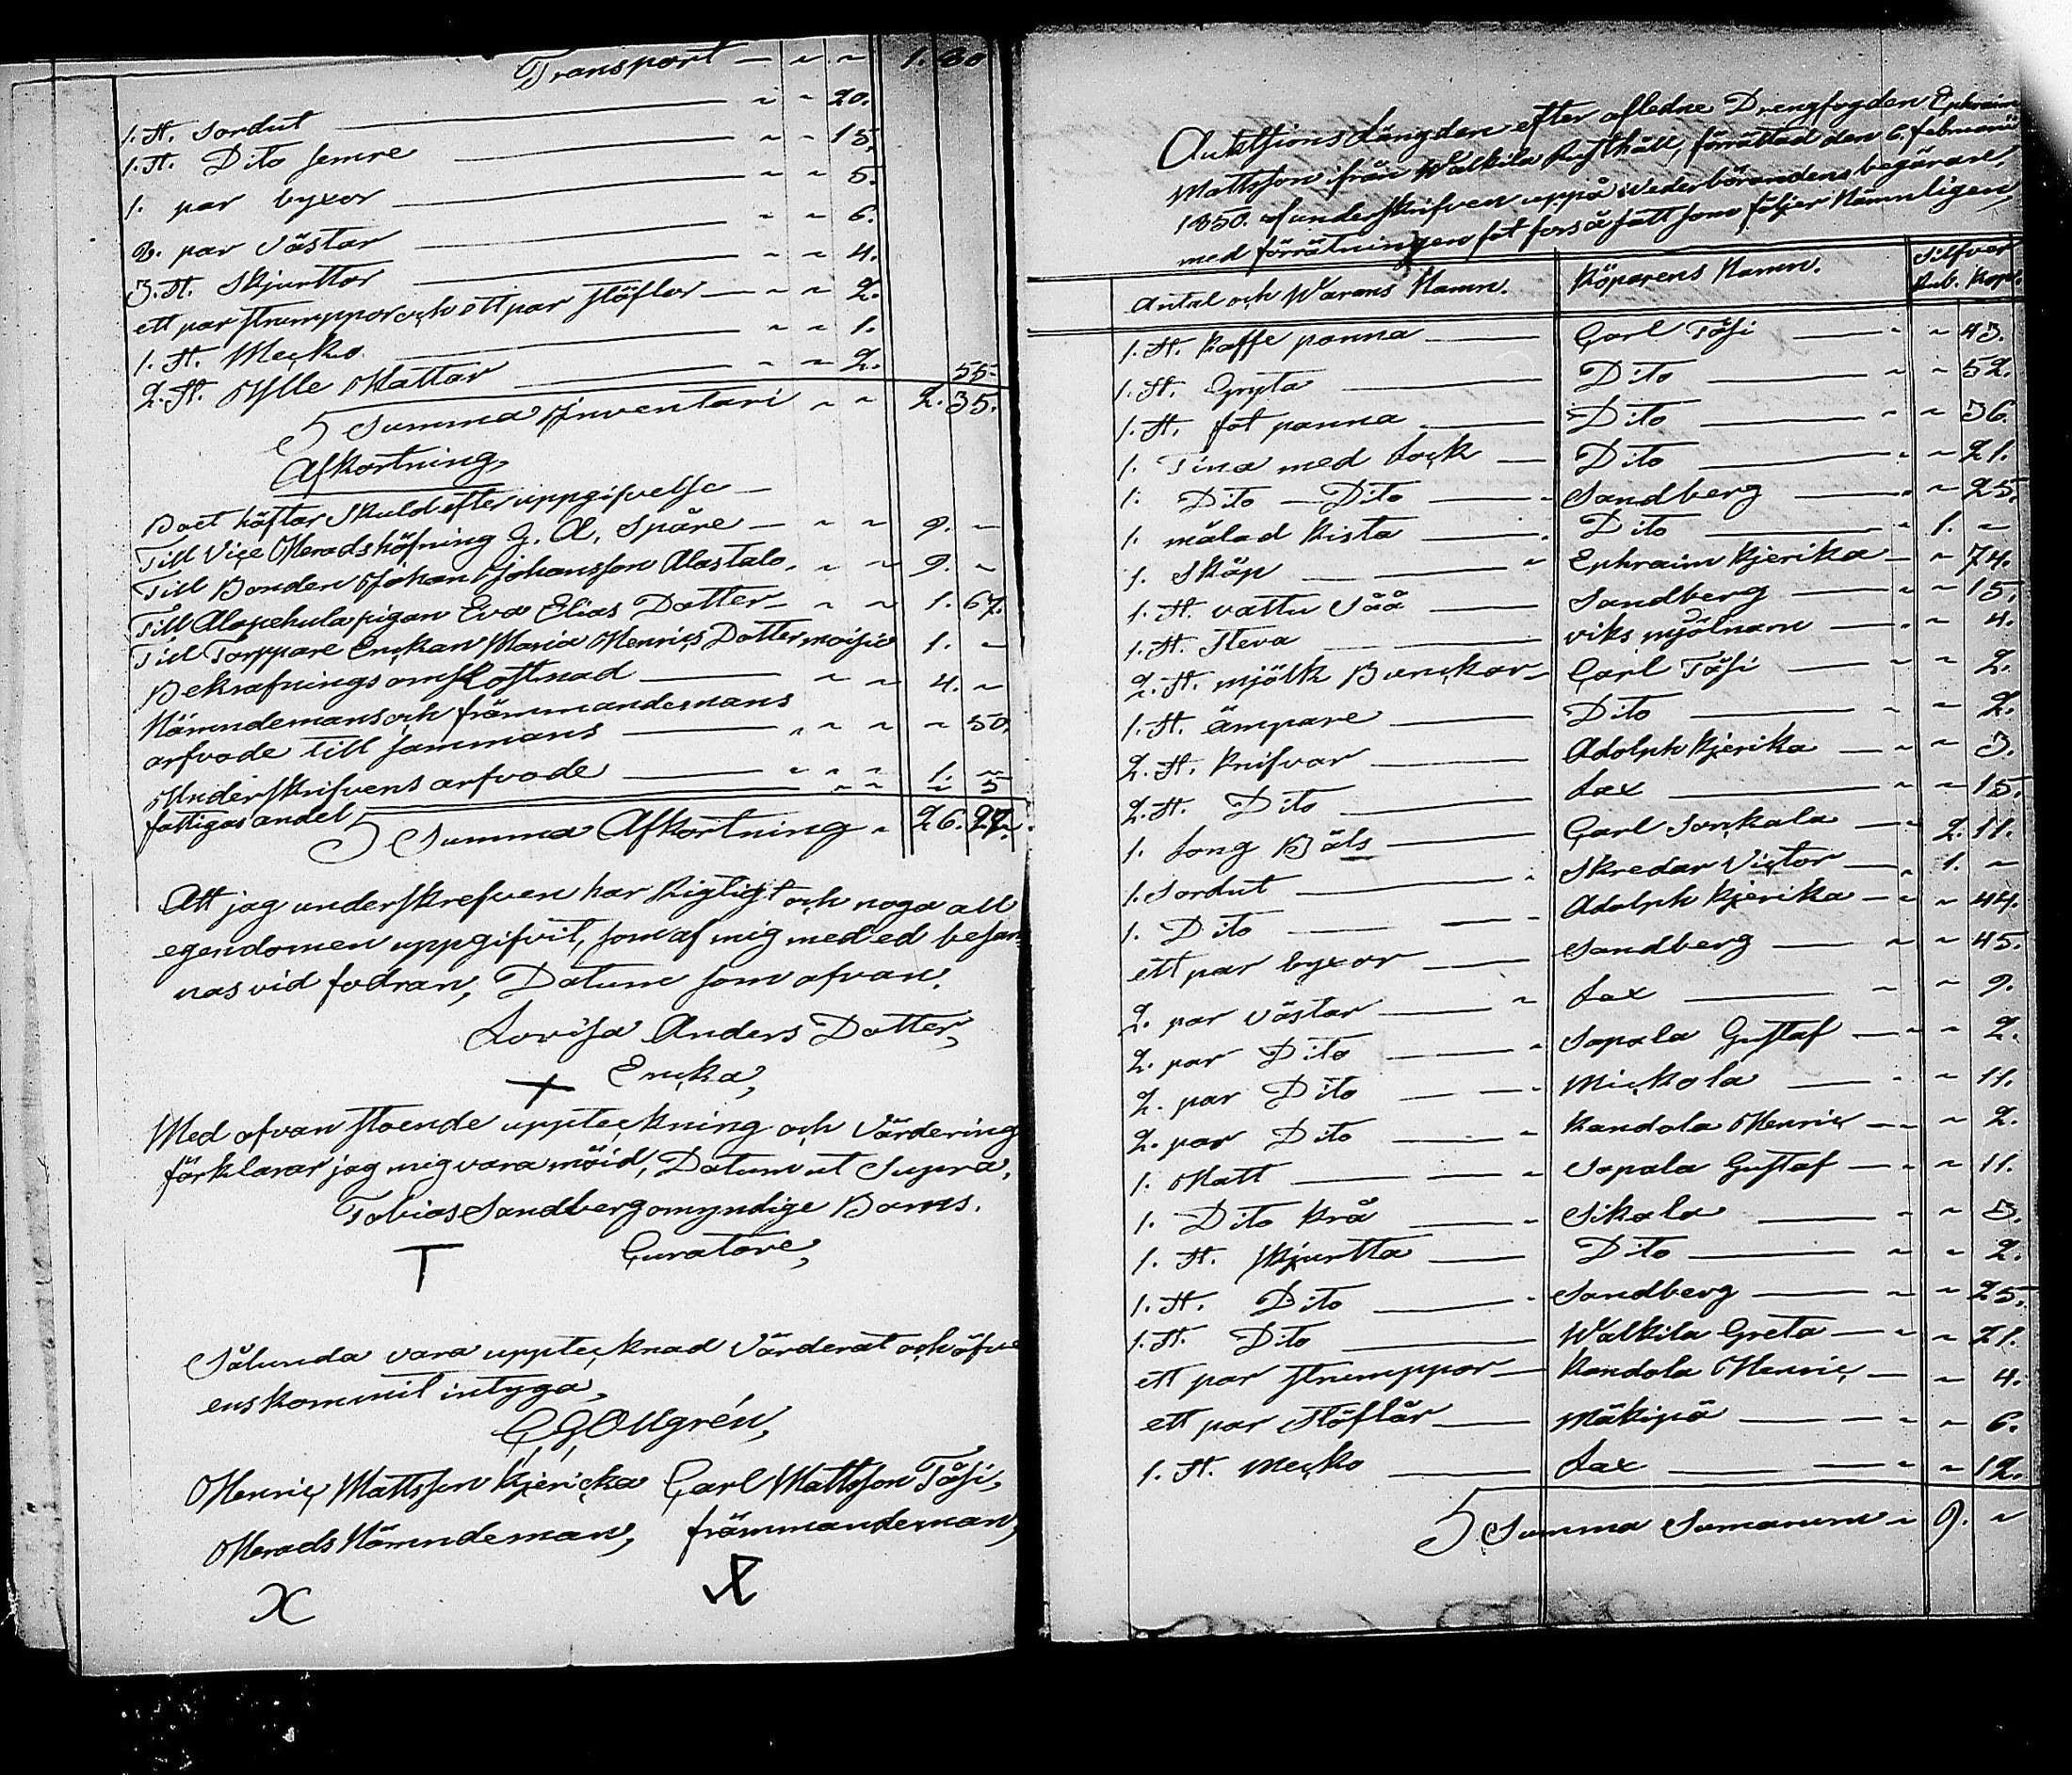 Transport — " " 1. 80
1. st. Sordut — " " 20.
1. st. Dito semre — " " 15.
1. par byxor — " " 5.
8. par Västar — " " 6.
3. st. Skjurttor — " " 4.
ett par strumppor och ett par stöflor — " " 2.
1. st. Mecko — " " 1.
2. st. Ylle Mattor — " " 2. 55.
Summa Inventari " " 2. 35.
Afkortning,
Boet häftar Skuld efter uppgifvelse —
Till Vice Heradshöfning G. A. Spåre — " " 9. "
Till Bonden Johan Johansson Alastalo. " " 9. "
Till Alapehula pigan Eva Elias Dotter — " " 1. 67.
Till Torppare Enckan Maria Henrics Dotter moisio 1. "
Bekrafnings omkostnad — " " 4. "
Nämndemans och främmandemans
arfvode till sammans — " " " 50.
Underskrifvens arfvode — " " " 1. "
fattigas andel — " " " 5
Summa Afkortning " 26. 22.
Att jag underskrefven har Rigtigt och noga all
egendomen uppgifvit, som af mig med ed besan
nas vid fodran, Datum som ofvan.
Lovisa Anders Dotter,
+ Encka,
Med ofvan stoende uppteckning och Värdering
förklarar jag mig vara nöid, Datum ut Supra,
Tobias Sandberg omyndige Barns.
T Curatore,
Sålunda vara upptecknad Värderat och öfve
enskommit intyga,
Henric Mattsson Kjericka Carl Mattsson Tåsi,
Herads Nämndeman, främmandeman,
X
Auktsions Längden efter afledne Drengfogden Ephraim
Mattsson från Walkila Rusthåll, förrättad den 6. februarii
1850. af underskrifven uppå wederbörandens begäran,
med förrätningen fot fors å satt som följer Nämnligen,
Antal och Warans Namn. Köparens Namn. Silfver Rub. Kop.
1. st. Kaffe panna — Carl Tåsi — " " 43.
1. st. Gryta — Dito — " " 52.
1. st. fot panna — Dito — " 36.
1. Tina med Lock — Dito — " " 21.
1. Dito — Dito — Sandberg — " " 25.
1. målad Kista — Dito — " 1. "
1. Skåp — Ephraim Kjerika — " 74.
1. st. vattu Såå — Sandberg — " " 15.
1. st. Steva — viks mjölnarn — " " 4.
2. st. mjölk Bunckar — Carl Tåsi — " " 2.
1. st. ämpare — Dito — " " 2.
2. st. Knifvar — Adolph Kjerika — " " 3.
2. st. Dito — Lax — " " 15.
1. Long Bäls — Carl Sonkala — " 2. 11.
1. Sordut — Skredar Victor — " 1. "
1. Dito — Adolph Kjerika — " " 44.
ett par byxor — Sandberg — " " 45.
2. par Västar — Lax — " " 9.
2. par Dito — Sapala Gustaf — " " 2.
2. par Dito — Mickola — " " 11.
2. par Dito — Kandola Henric — " 2.
1. Hatt — Sapala Gustaf — " " 11.
1. Dito krå — Sikala — " " 3.
1. st. Skjurtta — Dito — " " 2.
1. st. Dito — Sandberg — " " 25.
1. st. Dito — Walkila Greta — " " 21.
ett par strumppor — Kandola Henric — " 4.
ett par Stöflår — Mäkipä — " " 6.
1. st. Mecko — Lax — " " 12.
Summa Sumarum " 9. "